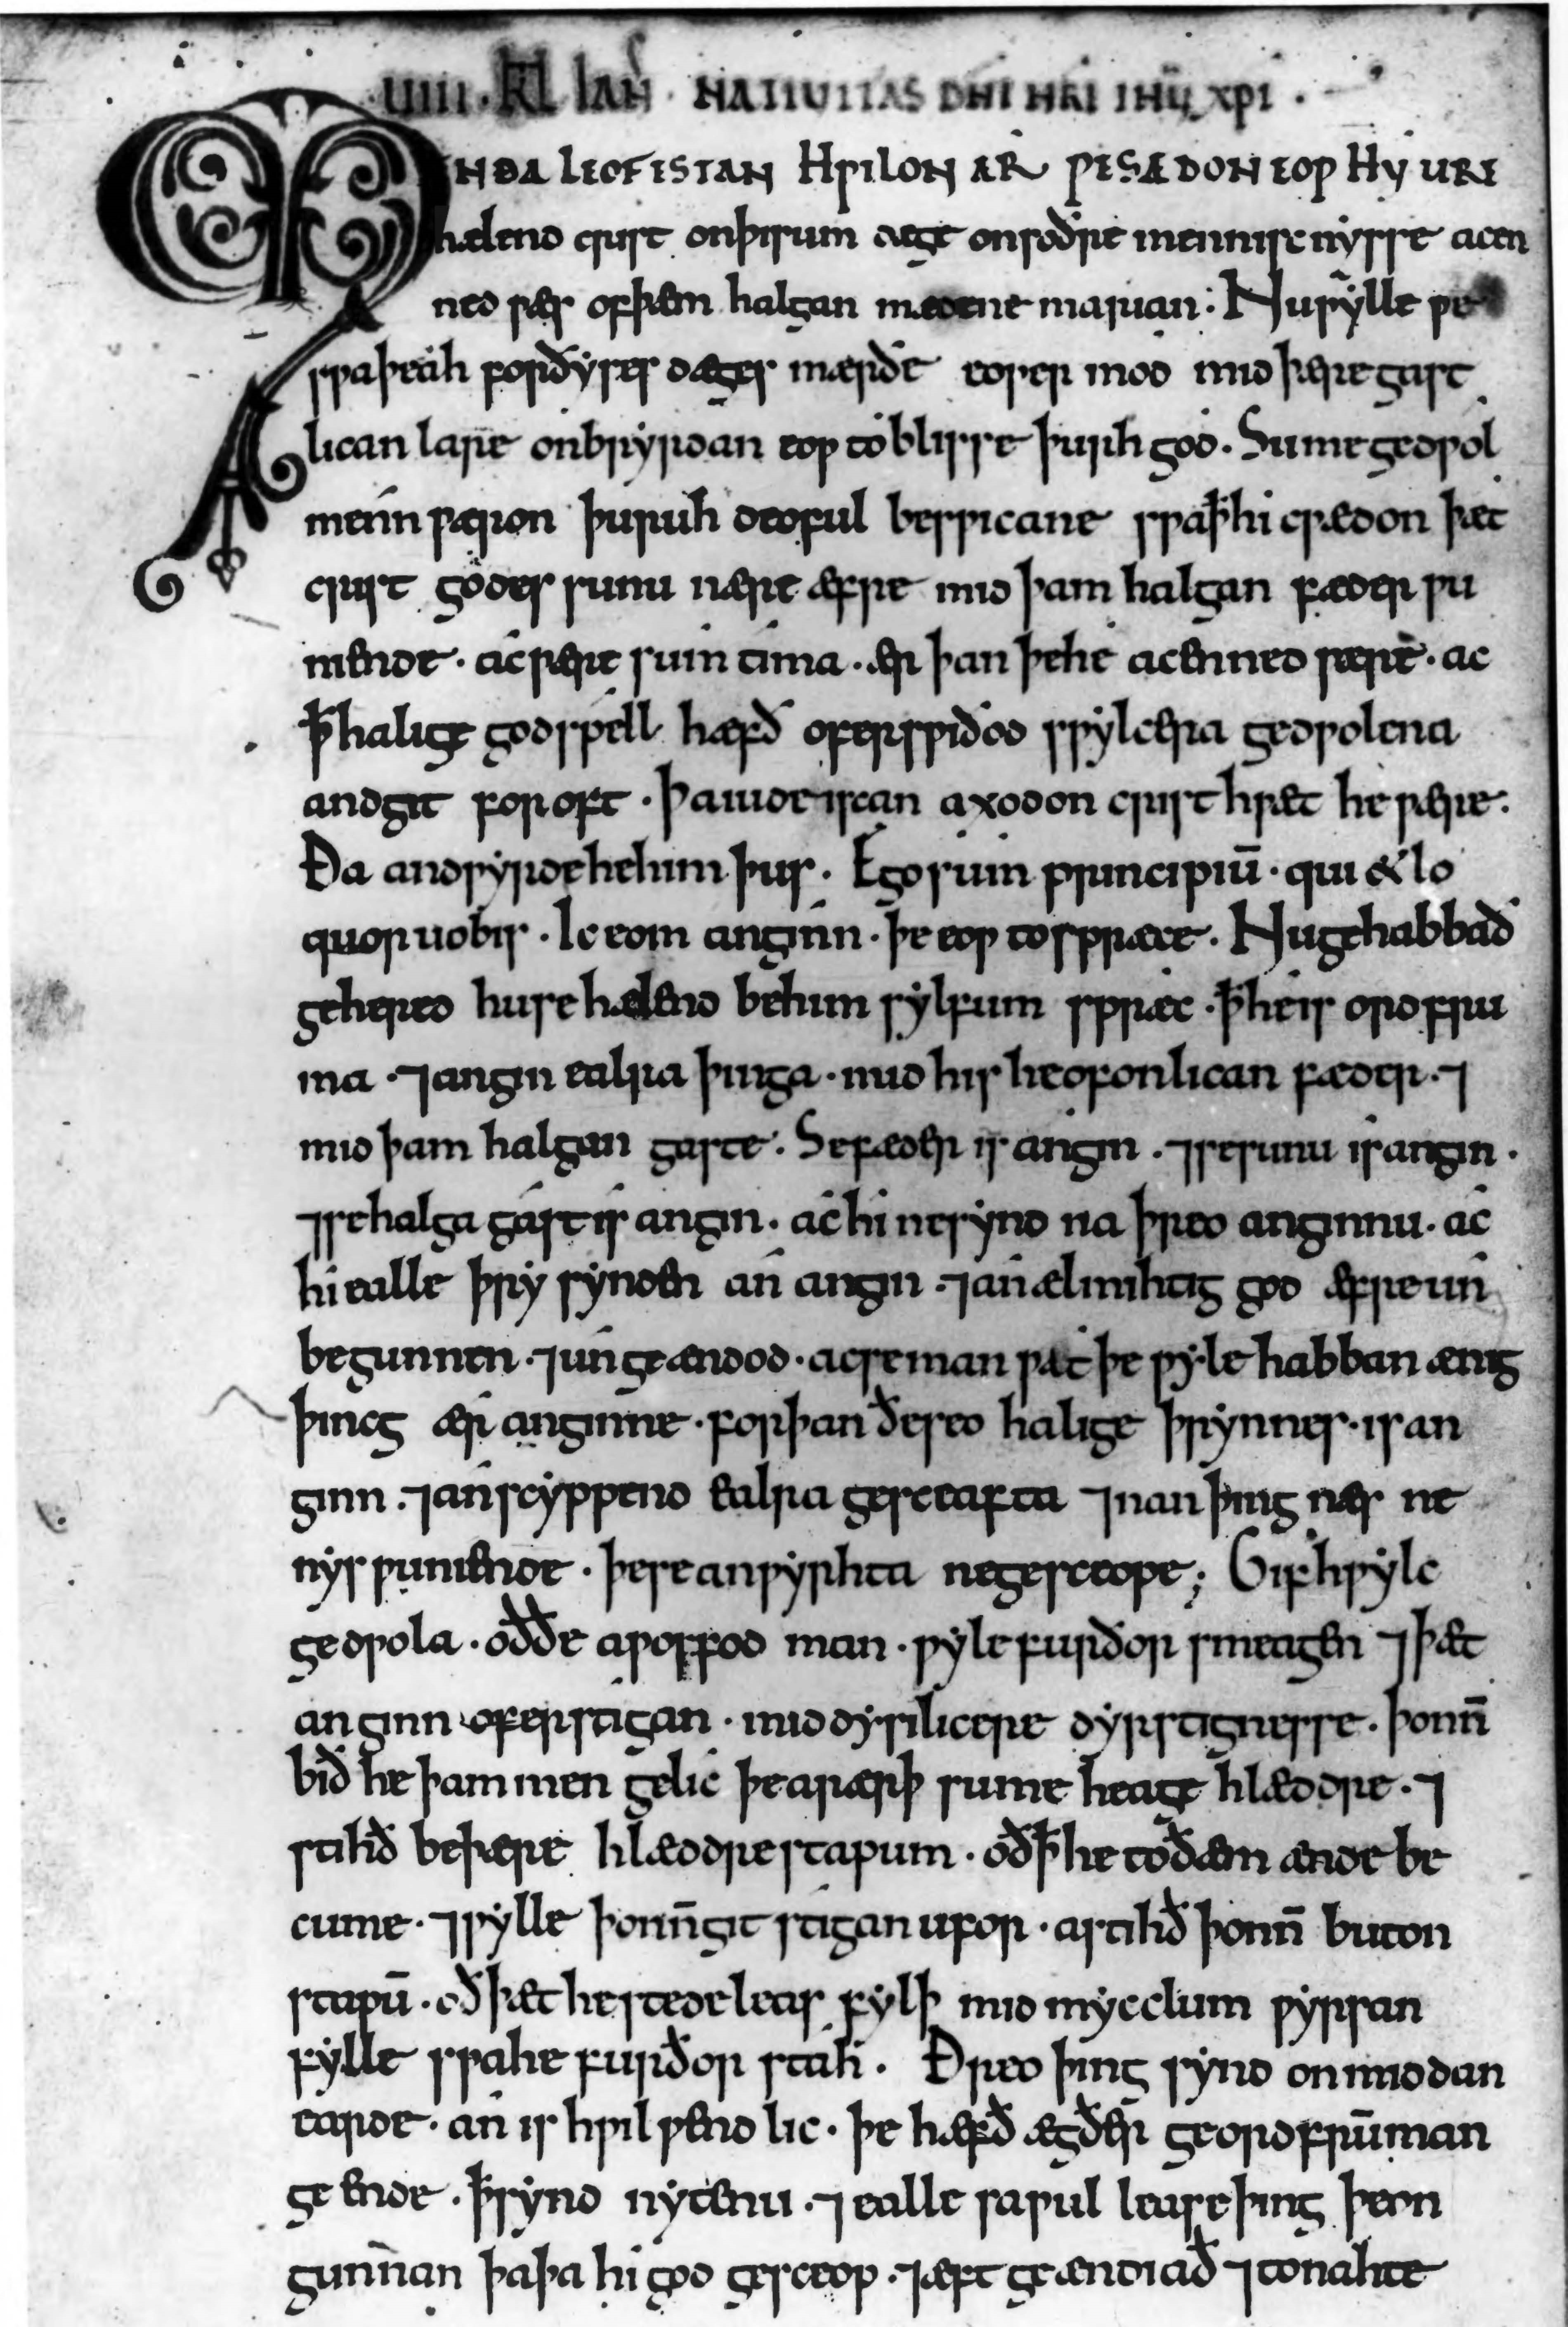 UIIII · KL IAN̄ · NATIUITAS DNI NRI IHU XPI ·
MEN ÐA LEOFESTAN HǷILON ÆR ǷE SÆDON EOǷ HU URE
hælend crist on þisum dæge on soðre menniscnysse acen
ned ƿæs of þæm halgan mædene marian : Nu ƿylle ƿe
sƿa þeah for ðyses dæges mærðe eoƿer mod mid þære gast
lican lare onbryrdan eoƿ to blisse þurh god . Sume gedƿol
menn ƿæron þuruh deoful besƿicane sƿa þ̄ hi cƿædon þæt
crist godes sunu nære æfre mid þam halgan fæder ƿu
niende . ac ƿære sum tima . ær þan þe he acenned ƿære . ac
þ̄ halige godspell hæfð oferspiðod sƿylcera gedƿolena
andgit foroft . þa iudeiscan axodon crist hƿæt he ƿære .
Ða andƿyrde he him þus . Ego sum principiū . qui & lo
quor uobis . Ic eom anginn . þe eoƿ to sprece . Nu ge habbað
gehered hu se hælend be him sylfum spræc . þ̄ he is ordfru
ma . ⁊ angin ealra þinga . mid his heofonlican fæder . ⁊
mid þam halgan gaste . Se fæder is angin . ⁊ se sunu is angin .
⁊ se halga gast is angin . ac hi ne synd na þreo anginnu . ac
hi ealle þry synden an angin . ⁊ an ælmihtig god æfre un
begunnen . ⁊ ungeændod . ac se man ƿæt þe ƿyle habban ænig
þincg ær anginne . forþan ðe seo halige þrynnes . is an
ginn . ⁊ an scyppend ealra gesceafta ⁊ nan þing næs ne
nys ƿuniende . þe se anƿyrhta ne gesceope ; Gif hƿylc
gedƿola . oððe aƿoffod man . ƿyle furðor smeagen ⁊ þæt
anginn oferstigan . mid dysilicere dyrstignesse . þonn̄
bið he þam men gelic þe arærþ sume heage hlæddre . ⁊
stihð be þære hlæddre stapum . oð þ̄ he to ðæm ænde be
cume . ⁊ ƿylle þonn̄ git stigan ufor . astihð þonn̄ buton
stapū . oð þæt he stedeleas fylþ mid mycclum ƿyrsan
fylle sƿa he furðor stah . Ðreo þing synd on middan
earde . an is hƿilƿend lic . þe hæfð ægðer ge ordfrūman
ge ende . þ̄ synd nytenu . ⁊ ealle saƿul lease þing þe on
gunnan þa þa hi god gesceop . ⁊ æft geændiað ⁊ to nahte